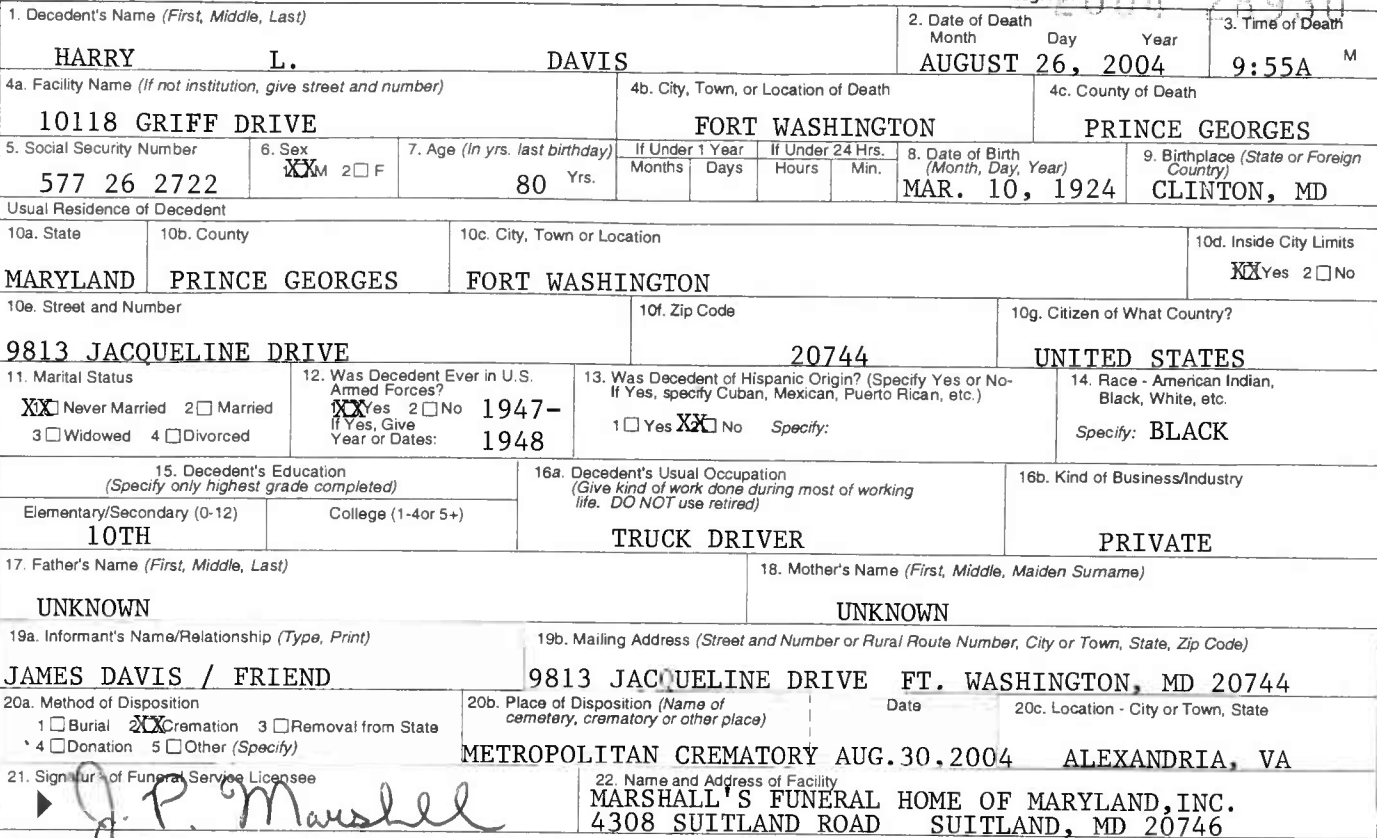 1. Decedent's Name (First, Middle, Last)
HARRY L. DAVIS
2. Date of Death
Month Day Year
AUGUST 26, 2004
3. Time of Death
9:55A M
4a. Facility Name (If not institution, give street and number)
10118 GRIFF DRIVE
4b. City, Town, or Location of Death
FORT WASHINGTON
4c. County of Death
PRINCE GEORGES
5. Social Security Number
577 26 2722
6. Sex
1XXM 2☐ F
7. Age (In yrs. last birthday)
80 Yrs.
If Under 1 Year
Months Days
If Under 24 Hrs.
Hours Min.
8. Date of Birth
(Month, Day, Year)
MAR. 10, 1924
9. Birthplace (State or Foreign
Country)
CLINTON, MD
Usual Residence of Decedent
10a. State
MARYLAND
10b. County
PRINCE GEORGES
10c. City, Town or Location
FORT WASHINGTON
10d. Inside City Limits
XXYes 2☐No
10e. Street and Number
9813 JACQUELINE DRIVE
10f. Zip Code
20744
10g. Citizen of What Country?
UNITED STATES
11. Marital Status
X1X☐ Never Married 2☐ Married
3☐Widowed 4☐Divorced
12. Was Decedent Ever in U.S.
Armed Forces?
1XXYes 2☐No 1947-
If Yes, Give
Year or Dates: 1948
13. Was Decedent of Hispanic Origin? (Specify Yes or No-
If Yes, specify Cuban, Mexican, Puerto Rican, etc.)
1☐Yes X2X☐ No Specify:
14. Race - American Indian,
Black, White, etc.
Specify: BLACK
15. Decedent's Education
(Specify only highest grade completed)
Elementary/Secondary (0-12)
10TH
College (1-4or 5+)
16a. Decedent's Usual Occupation
(Give kind of work done during most of working
life. DO NOT use retired)
TRUCK DRIVER
16b. Kind of Business/Industry
PRIVATE
17. Father's Name (First, Middle, Last)
UNKNOWN
18. Mother's Name (First, Middle, Maiden Surname)
UNKNOWN
19a. Informant's Name/Relationship (Type, Print)
JAMES DAVIS / FRIEND
19b. Mailing Address (Street and Number or Rural Route Number, City or Town, State, Zip Code)
9813 JACQUELINE DRIVE FT. WASHINGTON, MD 20744
20a. Method of Disposition
1☐Burial 2XXCremation 3☐Removal from State
4☐Donation 5☐Other (Specify)
20b. Place of Disposition (Name of
cemetery, crematory or other place)
METROPOLITAN CREMATORY
Date
AUG.30,2004
20c. Location - City or Town, State
ALEXANDRIA, VA
21. Signature of Funeral Service Licensee
J. P. Marshall
22. Name and Address of Facility
MARSHALL'S FUNERAL HOME OF MARYLAND,INC.
4308 SUITLAND ROAD SUITLAND, MD 20746